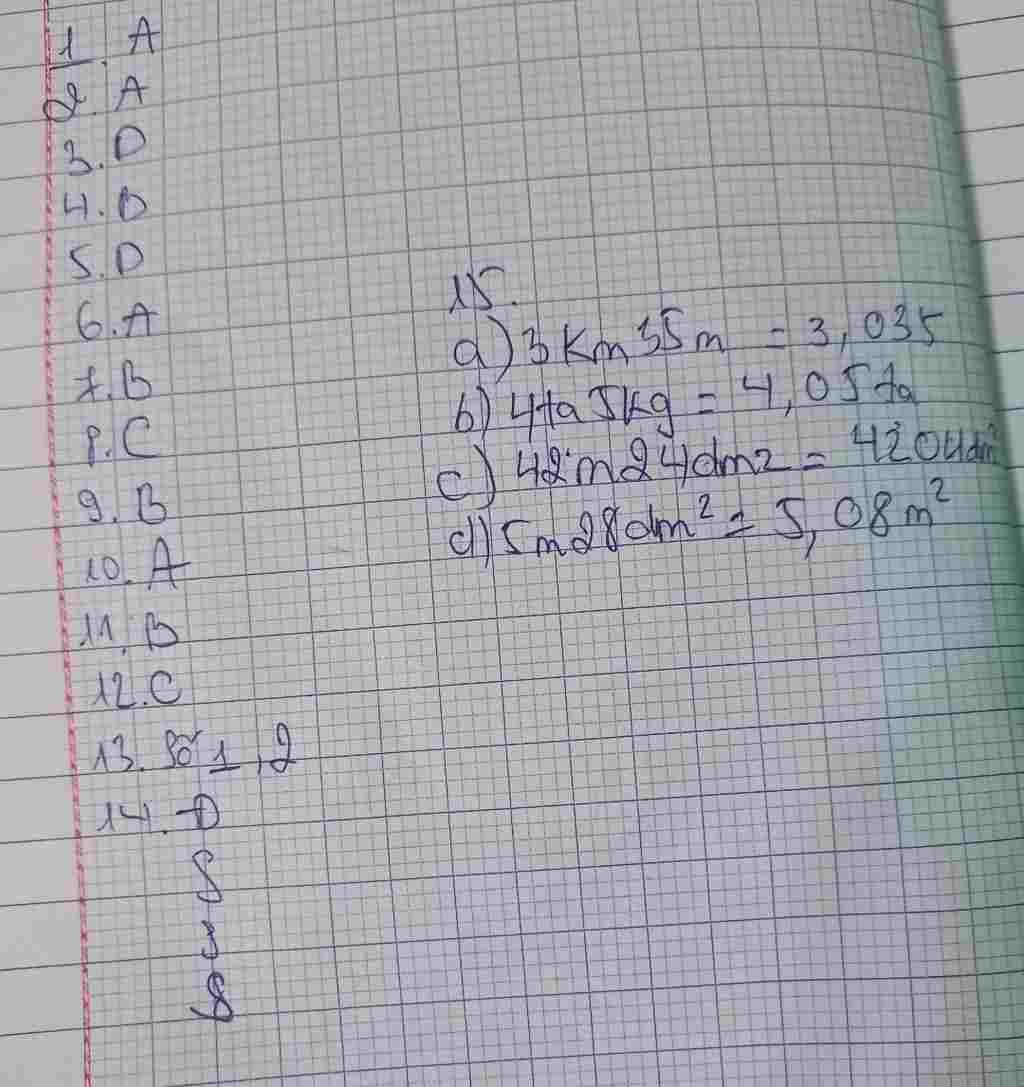 1. A
2. A
3. D
4. D
5. D
6. A
7. B
8. C
9. B
10. A
11. B
12. C
13. Số 1,2
14. Đ
S
S
15.
a) 3km35m = 3,035
b) 4tạ 5kg = 4,05 tạ
c) 42m24dm2 = 4204dm²
d) 5m28dm² = 5,08m²